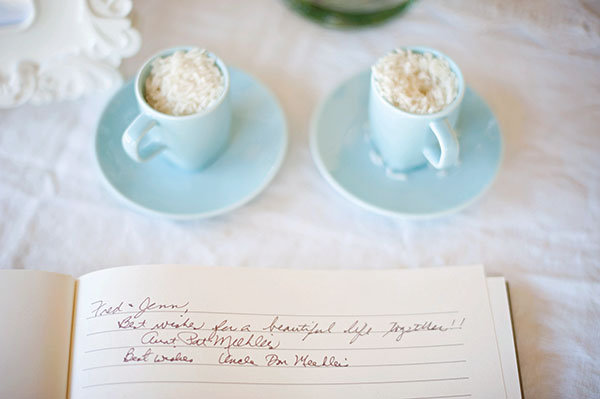 Fred & Jenn,
Best wishes for a beautiful life together!!
Aunt Pat Meehleis
Best wishes Uncle Don Meehleis